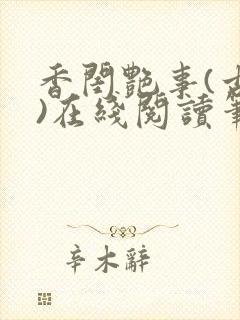 香閨艷事(
)在綫閱讀
辛木辭